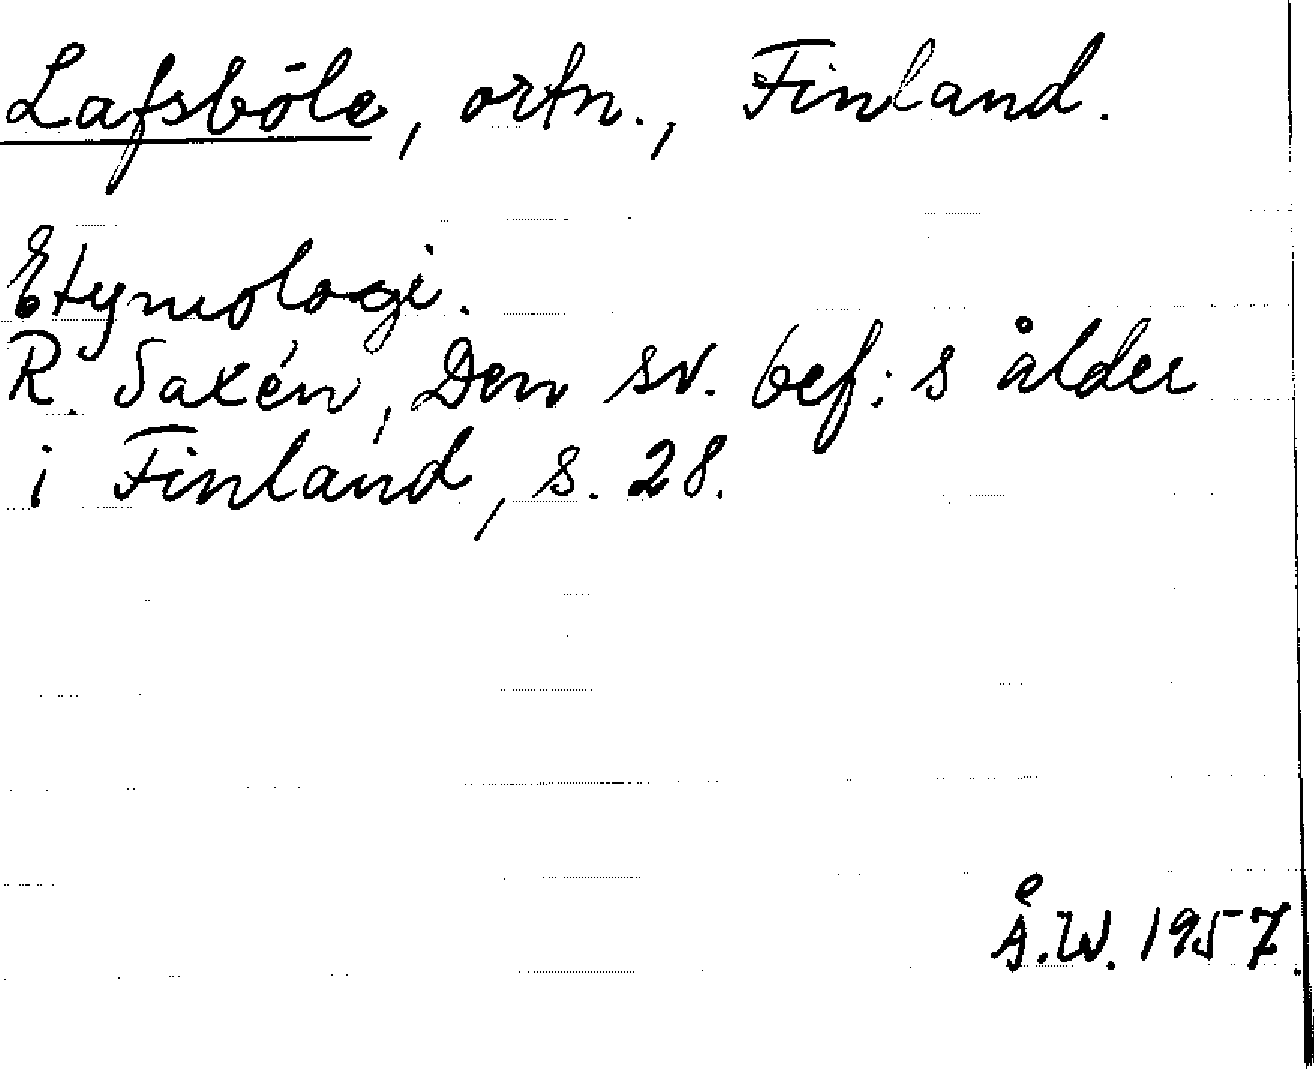 Lafsböle, ortn., Finland.
Etymologi.
R. Saxén, Den sv. bef:s ålder
i Finland, s. 28.
Å.W. 1957.